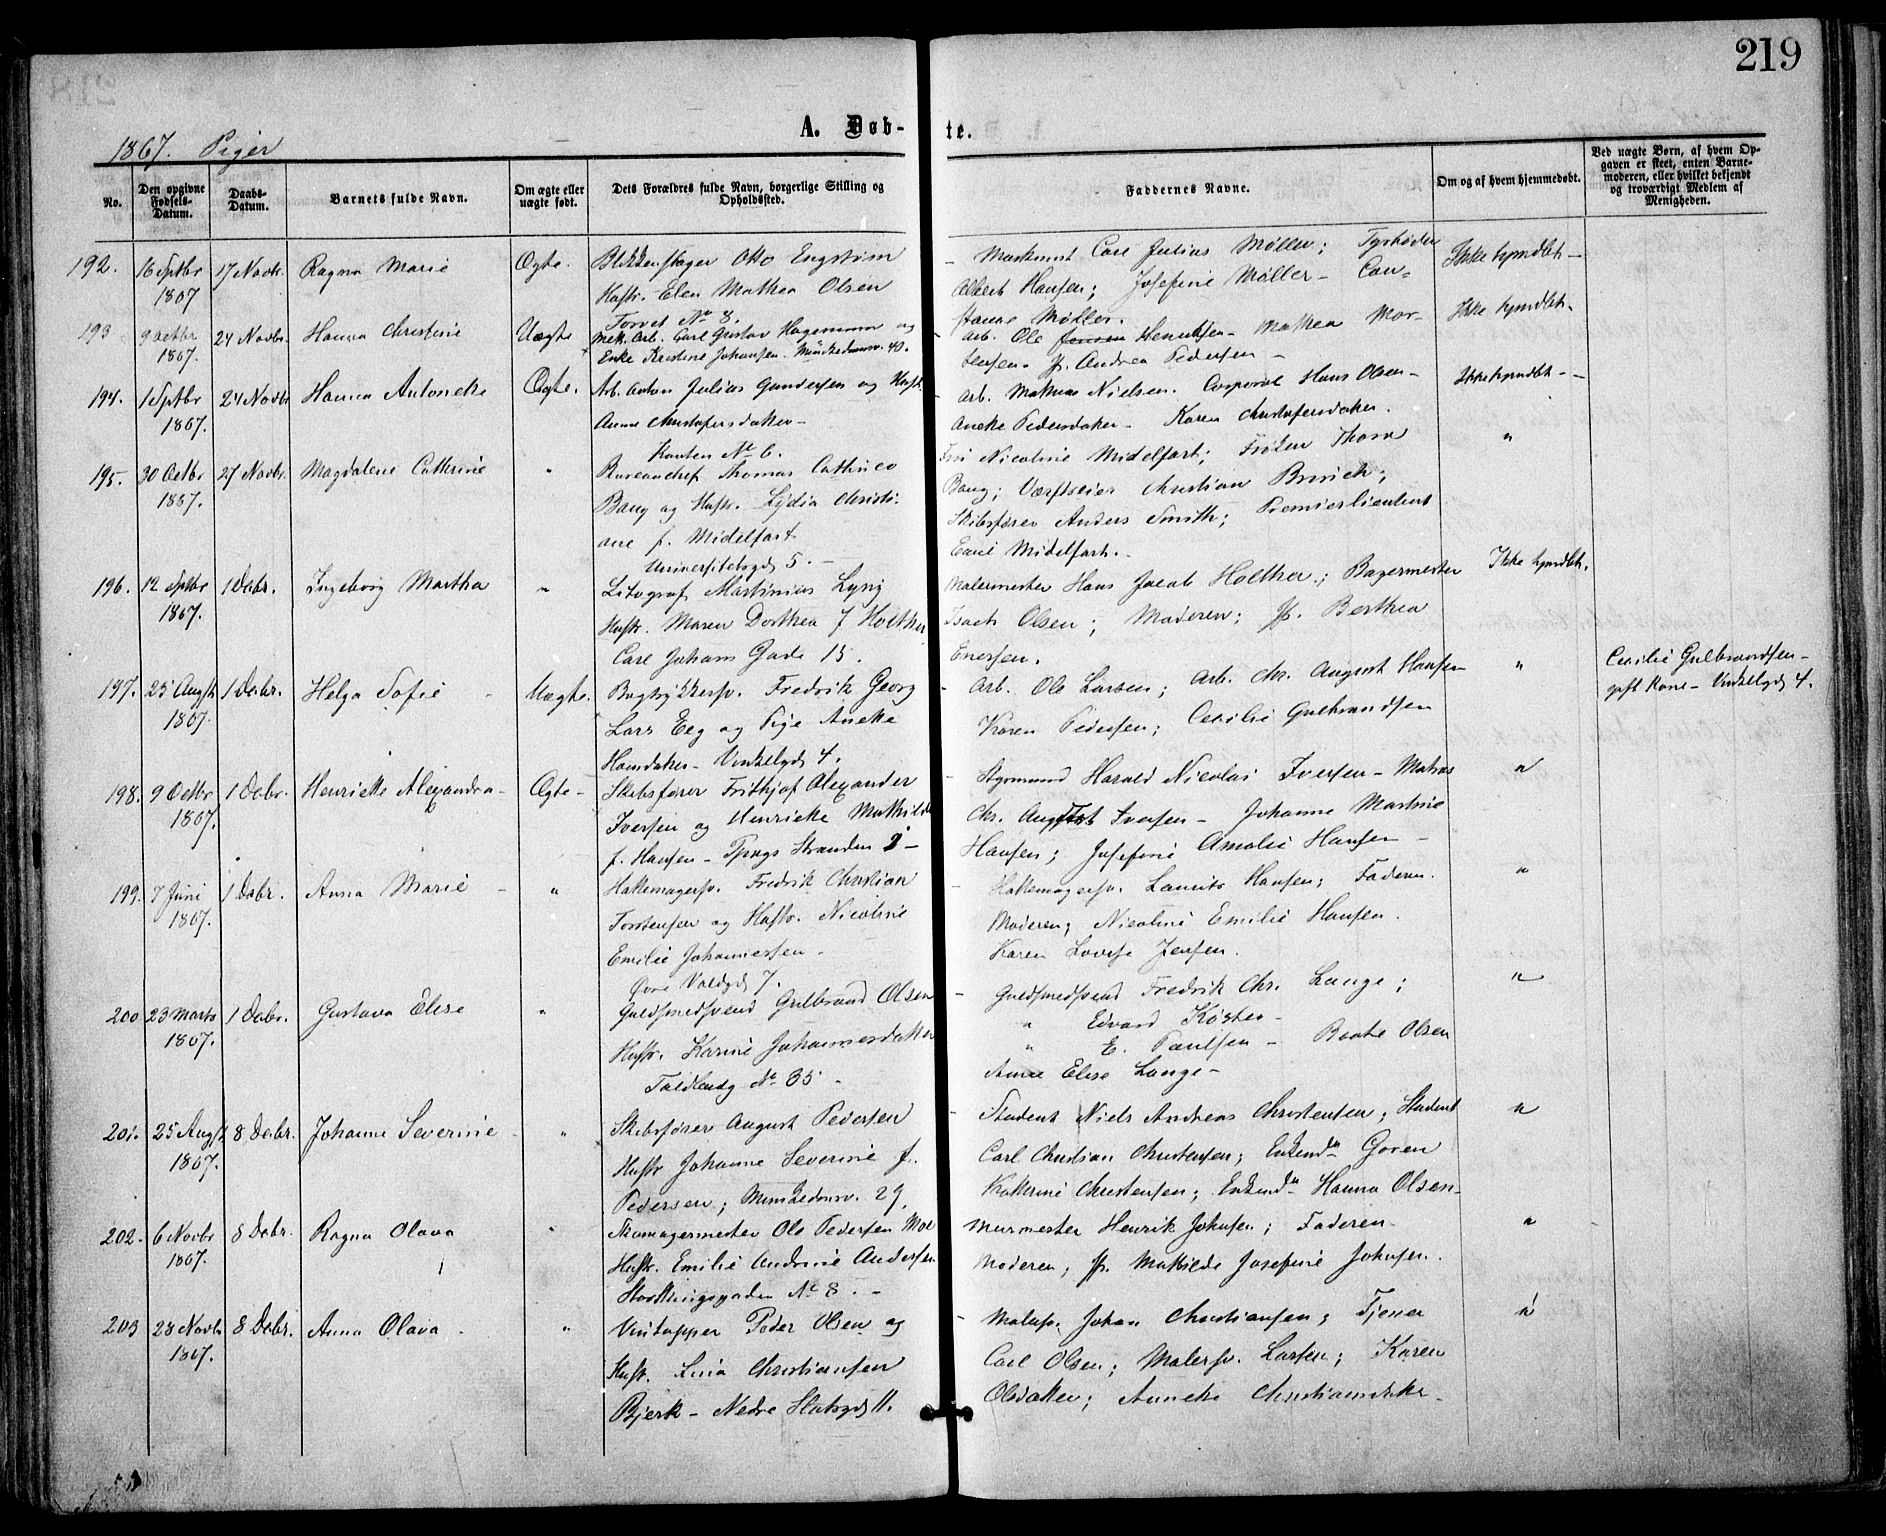 219
A. Døb-te.
1867. Piger
No.
Den opgivne Fødsels-Datum.
Daabs-Datum.
Barnets fulde Navn.
Om ægte eller uægte født.
Dets Forældres fulde Navn, borgerlige Stilling og Opholdssted.
Faddernes Navne.
Om og af hvem hjemmedøbt.
Ved uægte Børn, af hvem Opgaven er skeet, enten Barnemoderen, eller hvilket bekjendt og troværdigt Medlem af Menigheden.
192. 16 Septbr 1867 17 Novbr. Ragna Marie Ægte. Blikkenslager Otto Engstrøm
Hustr. Elen Mathea Olsen
Torvet No 8.
Maskinist Carl Julius Møller;
Albert Hansen; Josefine Møller - Con-
stance Møller.
Ikke hjmdbt -
193 9 Octbr 1867. 24 Novbr. Hanna Christine Uægte Mek. Arb. Carl Gustav Hagemann og
Enke Kristine Johansen. Munkedamsv. 40.
Arb. Ole Jensen Henriksen - Mathea Mor-
tensen. P. Andrea Pedersen -
Ikke hjmdbt.
194. 1 Septbr 1867. 24 Novbr Hanna Antonette Ægte. Arb. Anton Julius Gundersen og Hustr.
Anne Christofersdatter -
No 6.
Arb. Mathias Nielsen. Corporal Hans Olsen -
Anette Pedersdatter - Karen Christofersdatter.
Ikke hjmdbt -
195. 30 Octbr 1867. 27 Novbr. Magdalene Cathrine " Bureauchef Thomas Cathrico
Bang og Hustr. Lydia Christi-
ane f. Midelfart
Universitetsgd 5. -
Fru Nicoline Midelfart; Frøken Thora
Bang; Værftseier Christian Brinch;
Skibsfører Anders Smith; Premierlieutnt
Emil Midelfart.
"
196. 12 Septbr 1867. 1 Decbr. Ingeborg Martha " Litograf Martinius Lyng
Hustr. Maren Dorthea f Holther
Carl Johans Gade 15.
Malermester Hans Jacob Holther; Bagermester
Isach Olsen; Moderen; P. Berthea
Enersen.
Ikke hjmdbt.
197. 25 Augst 1867. 1 Decbr. Helga Sofie Uægte. Bogtrykkersv. Fredrik Georg
Lars Eeg og Pige Anette
Hansdatter - Vinkelgd 4.
Arb. Ole Larsen; Arb. Chr. August Hansen
Karen Pedersen; Cecilie Gulbrandsen
"
Cecilie Gulbrandsen -
gift Kone - Vinkelgd 4.
198. 9 Octbr 1867. 1 Decbr. Henriette Alexandra - Ægte - Skibsfører Frithjof Alexander
Iversen og Henriette Mathilde
f. Hansen - Strander 2 -
Styrmand Harald Nicolai Iversen - Matros
Chr. August Iversen - Johanne Martine
Hansen; Josefine Amalie Hansen -
"
199. 7 Juni 1867. 1 Decbr. Anna Marie - " Hattemagersv. Fredrik Christian
Torstensen og Hustr. Nicoline
Emilie Johannessen -
Øvre Voldgd 7.
Hattemagersv. Laurits Hansen; Faderen.
Moderen; Nicoline Emilie Hansen.
Karen Lovise Jensen.
"
200 23 Marts 1867. 1 Decbr. Gustava Elise " Guldsmedsvend Gulbrand Olsen
Hustr. Karine Johannesdatter
No 35 -
Guldsmedsvend Fredrik Chr. Lange;
" Edvard Køster -
" E. Paulsen - Beate Olsen
Anne Elise Lange -
"
201. 25 Augst 1867. 8 Decbr. Johanne Severine - " Skibsfører August Pedersen
Hustr Johanne Severine f.
Pedersen; Munkedamsv. 29.
Student Niels Andreas Christensen; Student
Carl Christian Christensen; Goren
Katherine Christensen; Hanna Olsen -
"
202. 6 Novbr 1867. 8 Decbr. Ragna Olava " Skomagermester Ole Pedersen Moe
Hustr. Emilie Andrine Andersen
Storthingsgaden No 8. -
Murmester Henrik Johnsen; Faderen.
Moderen; P. Mathilde Josefine Johnsen.
"
203 28 Novbr 1867. 8 Decbr. Anna Olava - " Vintapper Peder Olsen og
Hustr. Lina Christiansen
Bjerk - Nedre Slotsgd 11.
Malersv. Johan Christiansen; Tjener
Carl Olsen; Malersv. Larsen; Karen
Olsdatter; Annette Christiansdatter -
"